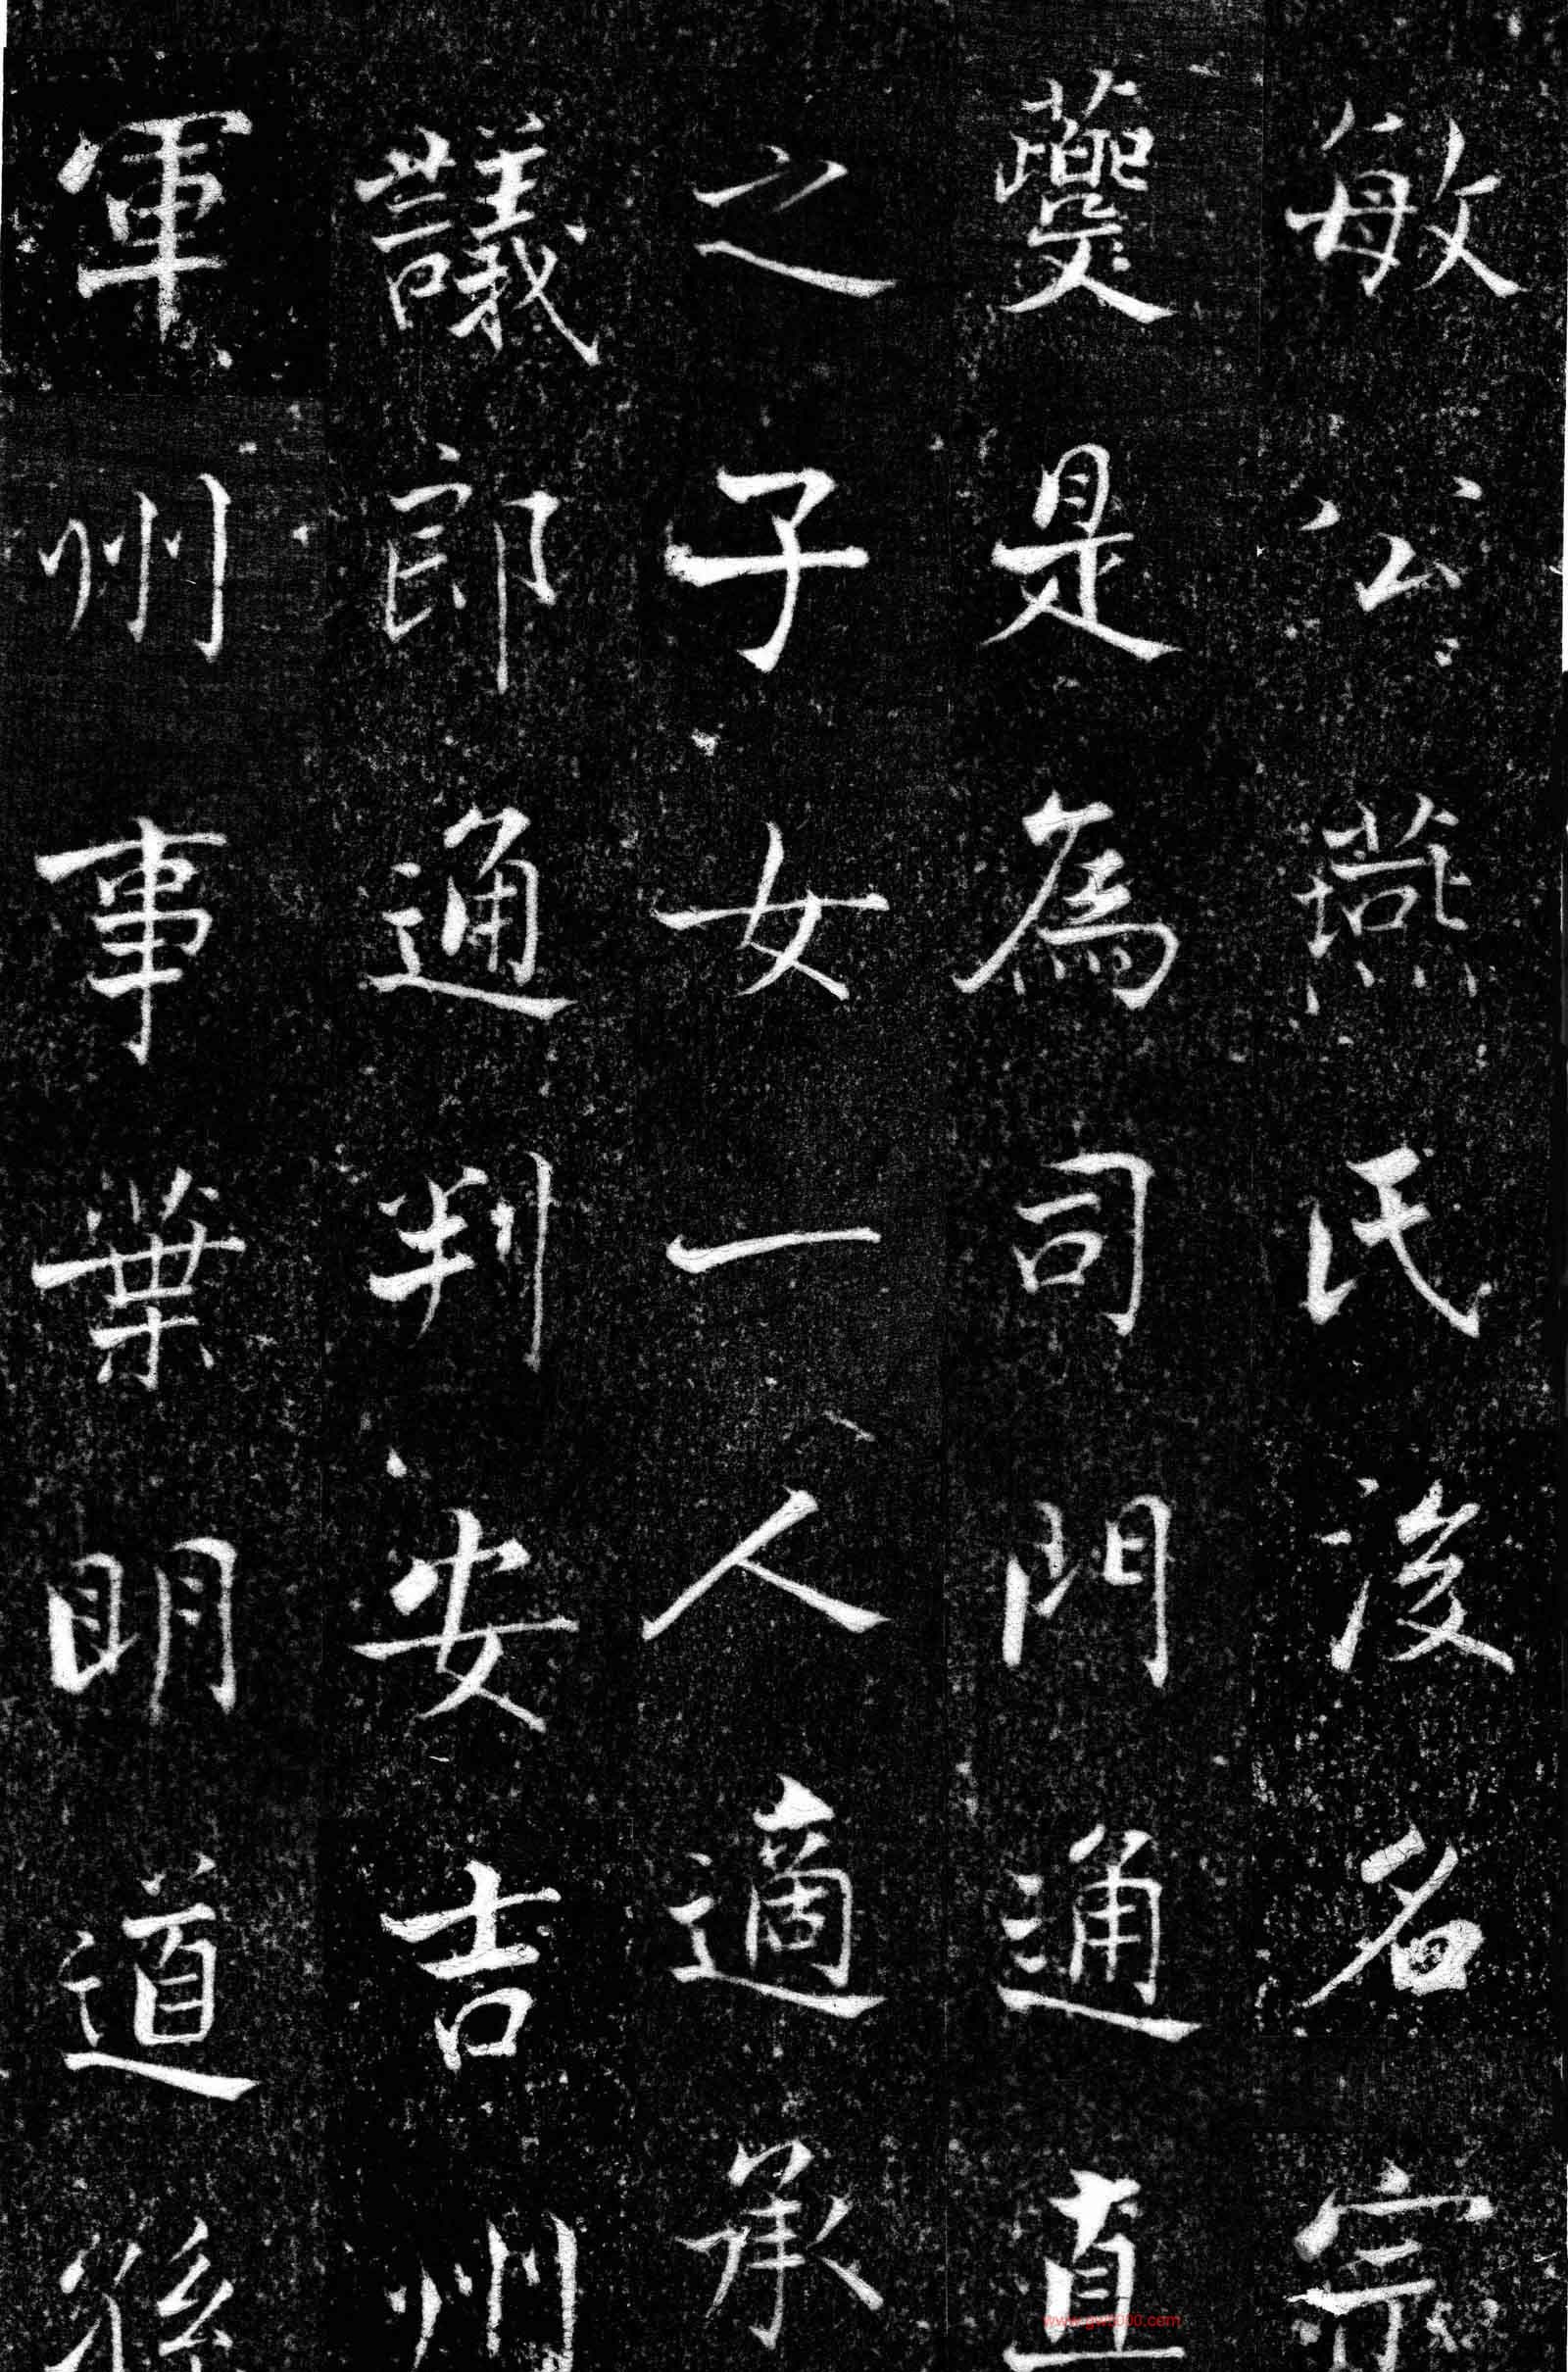 敏公燕氏後名宗
夔是為司門通直
之子女一人適承
議郎通判安吉州
軍州事葉明道孫
www.gwb000.com